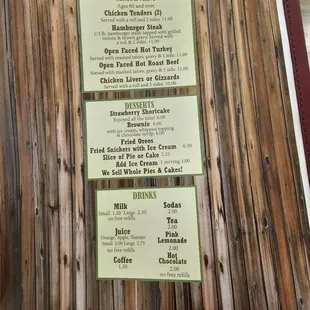 Ages 60 and over
Chicken Tenders (2)
Served with a roll and 2 sides. 11.00
Hamburger Steak
1/3 lb. hamburger steak topped with grilled
onions & brown gravy. Served with
a roll & 2 sides. 11.00
Open Faced Hot Turkey
Served with mashed tators, gravy & 1 side. 11.00
Open Faced Hot Roast Beef
Served with mashed tators, gravy & 1 side. 11.00
Chicken Livers or Gizzards
Served with a roll and 2 sides. 10.00
DESSERTS
Strawberry Shortcake
Enjoyed all the time! 6.00
Brownie
with ice cream, whipped topping
& chocolate syrup. 6.00
Fried Oreos
Fried Snickers with Ice Cream 6.50
Slice of Pie or Cake 5.25
Add Ice Cream 1 serving 3.00
We Sell Whole Pies & Cakes!
DRINKS
Milk
Small 1.50 Large 2.50
no free refills
Juice
Orange, Apple, Tomato
Small 2.00 Large 2.75
no free refills
Coffee
1.50
Sodas
2.00
Tea
2.00
Pink
Lemonade
2.00
Hot
Chocolate
2.00
no free refills